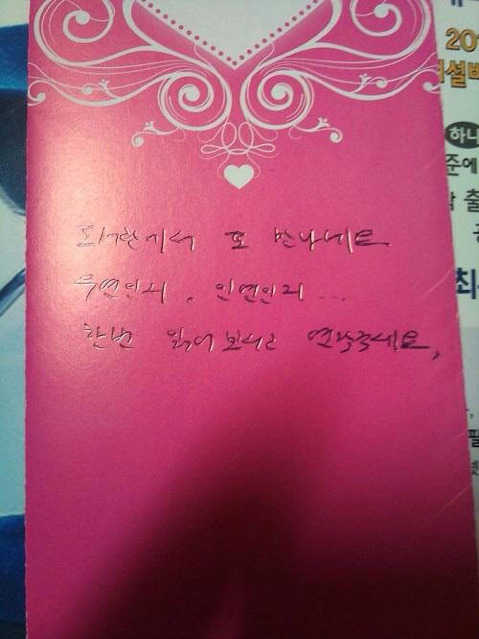 도서관에서 또 만나네요
우연인지, 인연인지...
한번 읽어보시고 연락주세요,
201
설
하나
준에
출
최